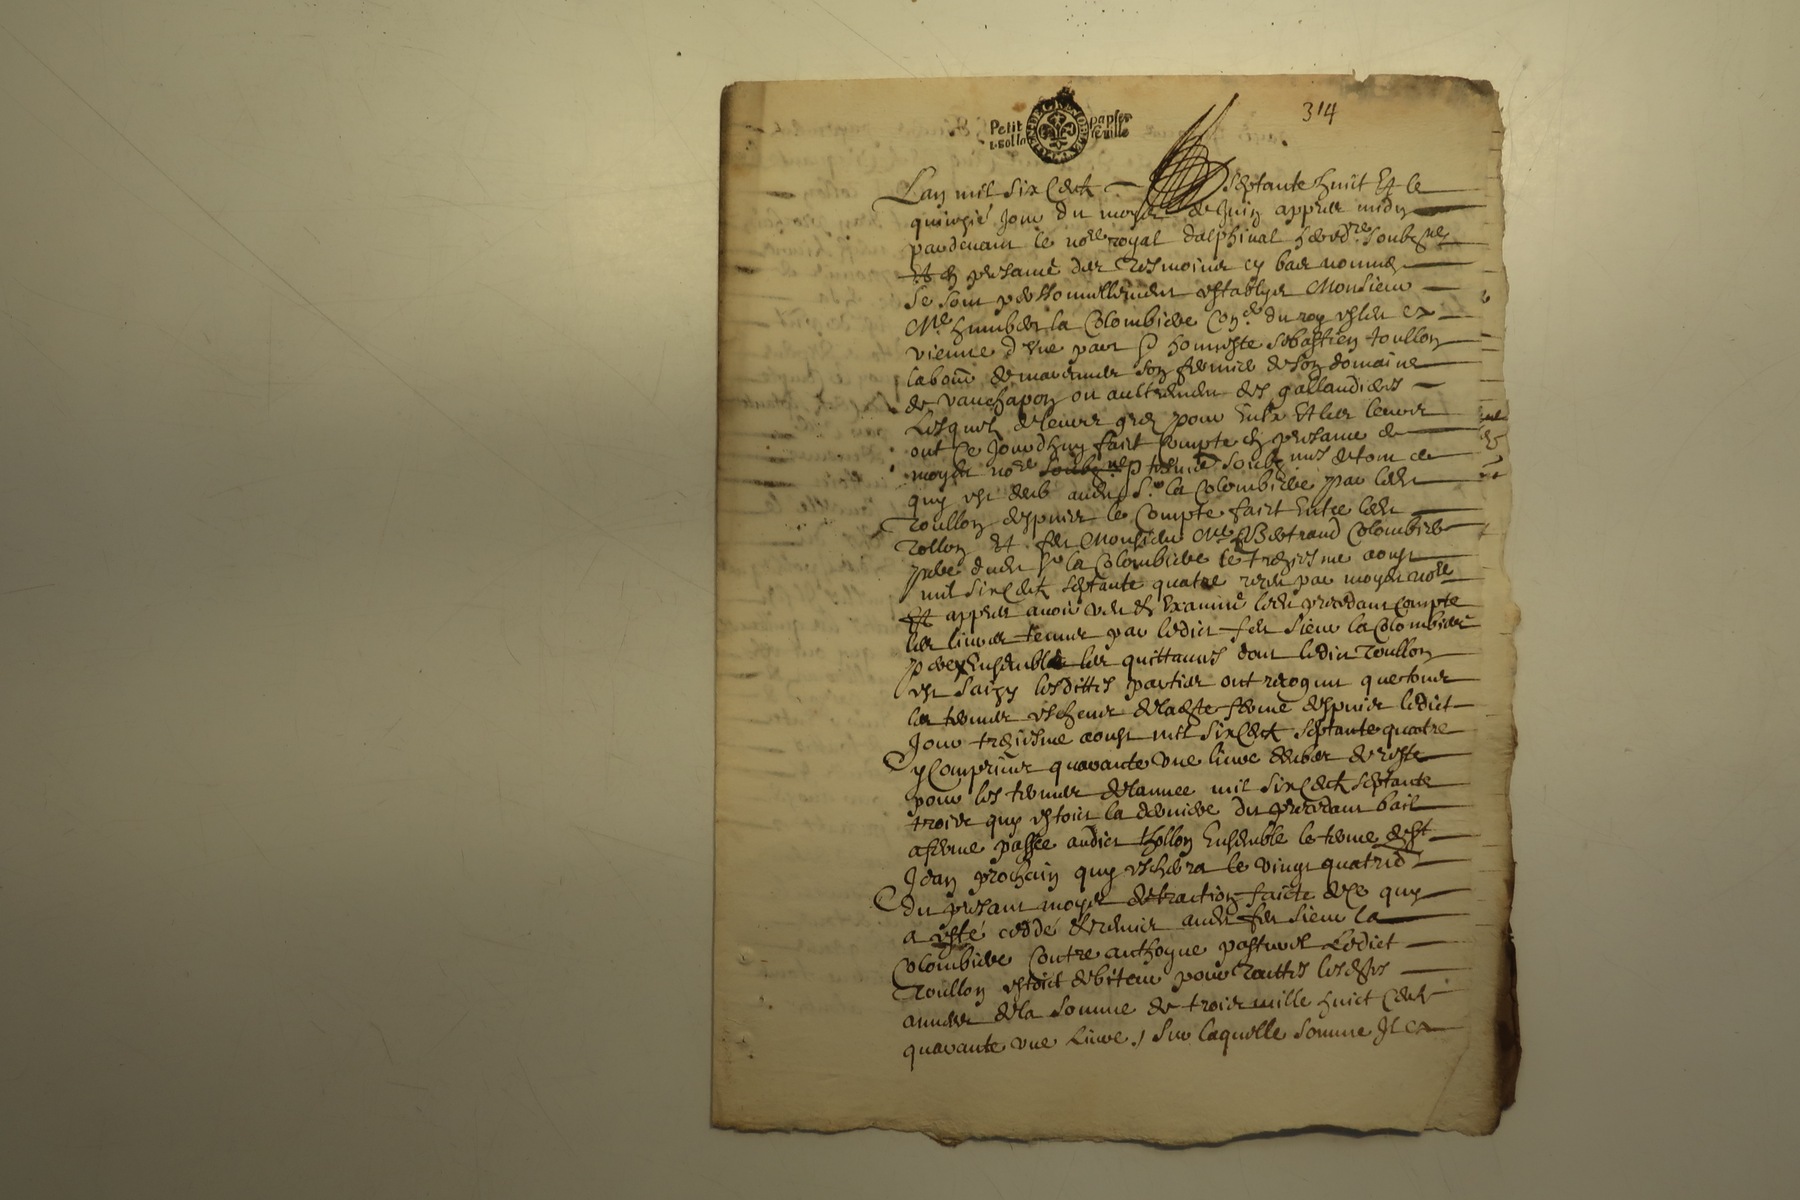 314
Petit papier
feuille
Lan mil six Cent septante huict Et le
jour du moys de Juin appres midy
pardevant le no.re royal dalphinal
Et en presance des tesmoins cy bas nommes
se sont personnellement establys Monsieur
M.re humbert la Colombiere Con.er du roy
vienne d'Vne part & honneste sebastien toullon
son fermier de son domaine
de vauchapon ou aultrement des gallandieres
Lesquels de leur gré pour Eulx Et les leurs
ont Ce Jourdhuy faict Compte en presance de
moydit no.re de tout ce
quy est deub audit S.r la Colombiere par ledit
Toullon despuis le Compte faict Entre ledit
Tollon Et feu Monsieur M.re Bertrand Colombiere
pere dudit S.r la Colombiere le treziesme aoust
mil six Cent septante quatre receu par moydit no.re
Et appres avoir veu et Examiné ledit precedant Compte
les livres tenus par ledict feu sieur la Colombiere
pere Ensemble les quittances dont ledict Toullon
est saizy lesdittes parties ont recogneu que tous
les termes escheus de ladite ferme despuis ledict
Jour treziesme aoust mil six Cent septante quatre
y Comprins quarante vne livre deubes de reste
pour les termes de lannee mil six Cent septante
troix quy estoict la derniere du precedant bail
a ferme passée audict thollon Ensemble le terme de st
Jean prochain quy escherra le vingt quatrie
du presant moys detraction faicte de Ce quy
a esté ceddé audit feu sieur la
Colombiere Contre anthoyne pasturel Ledict
Toullon estoict debiteur pour touttes lesdites
annees de la somme de troix mille huict Cent
quarante vne Livre / Sur laquelle somme Il ex